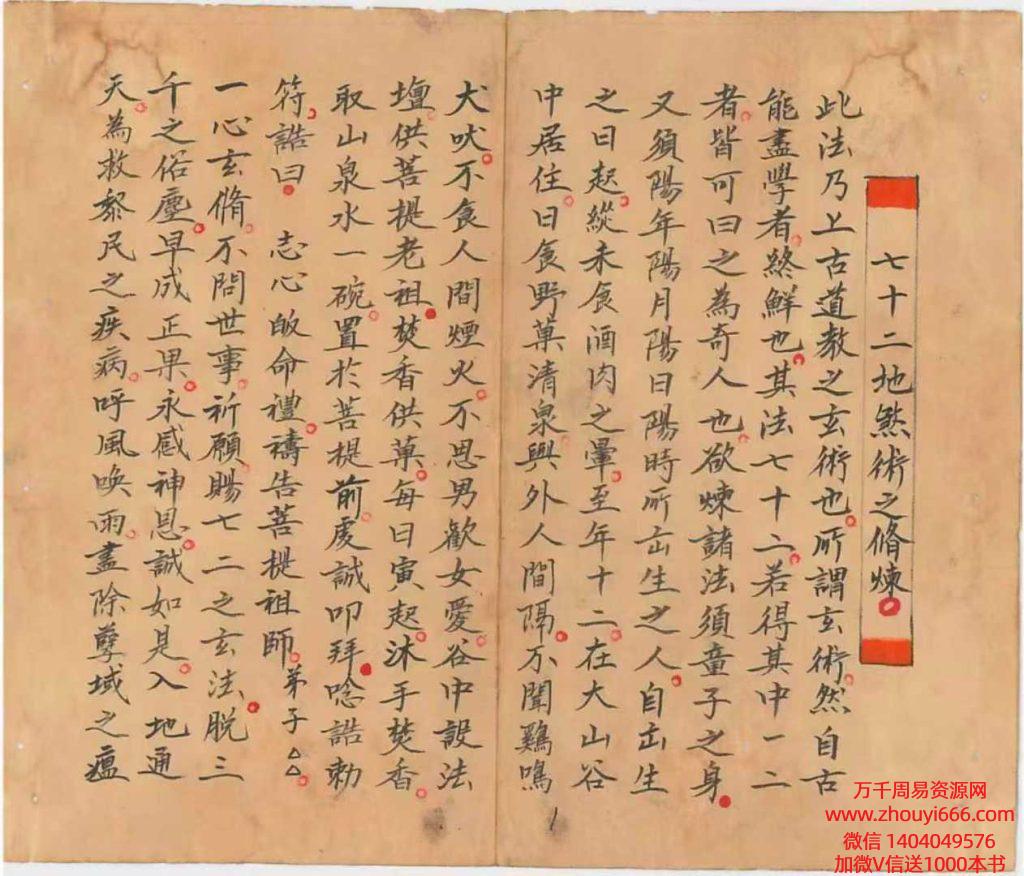 七十二地煞術之脩煉
此法乃上古道教之玄術也所謂玄術然自古
能盡學者終鮮也其法七十二若得其中一二
者皆可曰之為奇人也欲煉諸法須童子之身
又須陽年陽月陽日陽時所出生之人自出生
之日起縱未食酒肉之暈至年十二在大山谷
中居住日食野菓清泉與外人間隔不聞鷄鳴
犬吠不食人間煙火不思男歡女愛谷中設法
壇供菩提老祖焚香供菓每日寅起沐手焚香
取山泉水一碗置於菩提前虔誠叩拜唸誥勅
符誥曰 志心皈命禮禱告菩提祖師弟子△△
一心玄脩不問世事祈願賜七二之玄法脱三
千之俗塵早成正果永感神恩誠如是入地通
天為救黎民之疾病呼風喚雨盡除孽域之瘟
1
万千周易资源网
www.zhouyi666.com
微信 1404049576
加微V信送1000本书